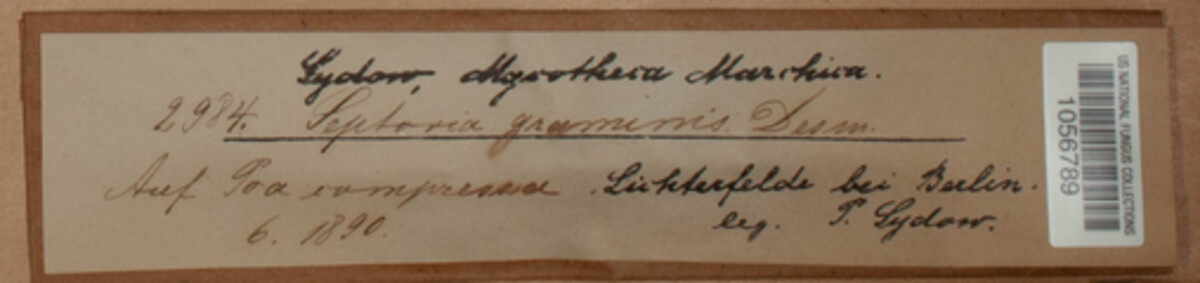 Sydow, Mycotheca Marchica.
2984. Septoria graminis Desm.
Auf Poa compressa Lichterfelde bei Berlin.
6. 1890. leg. P. Sydow.
US NATIONAL FUNGUS COLLECTIONS
1056789